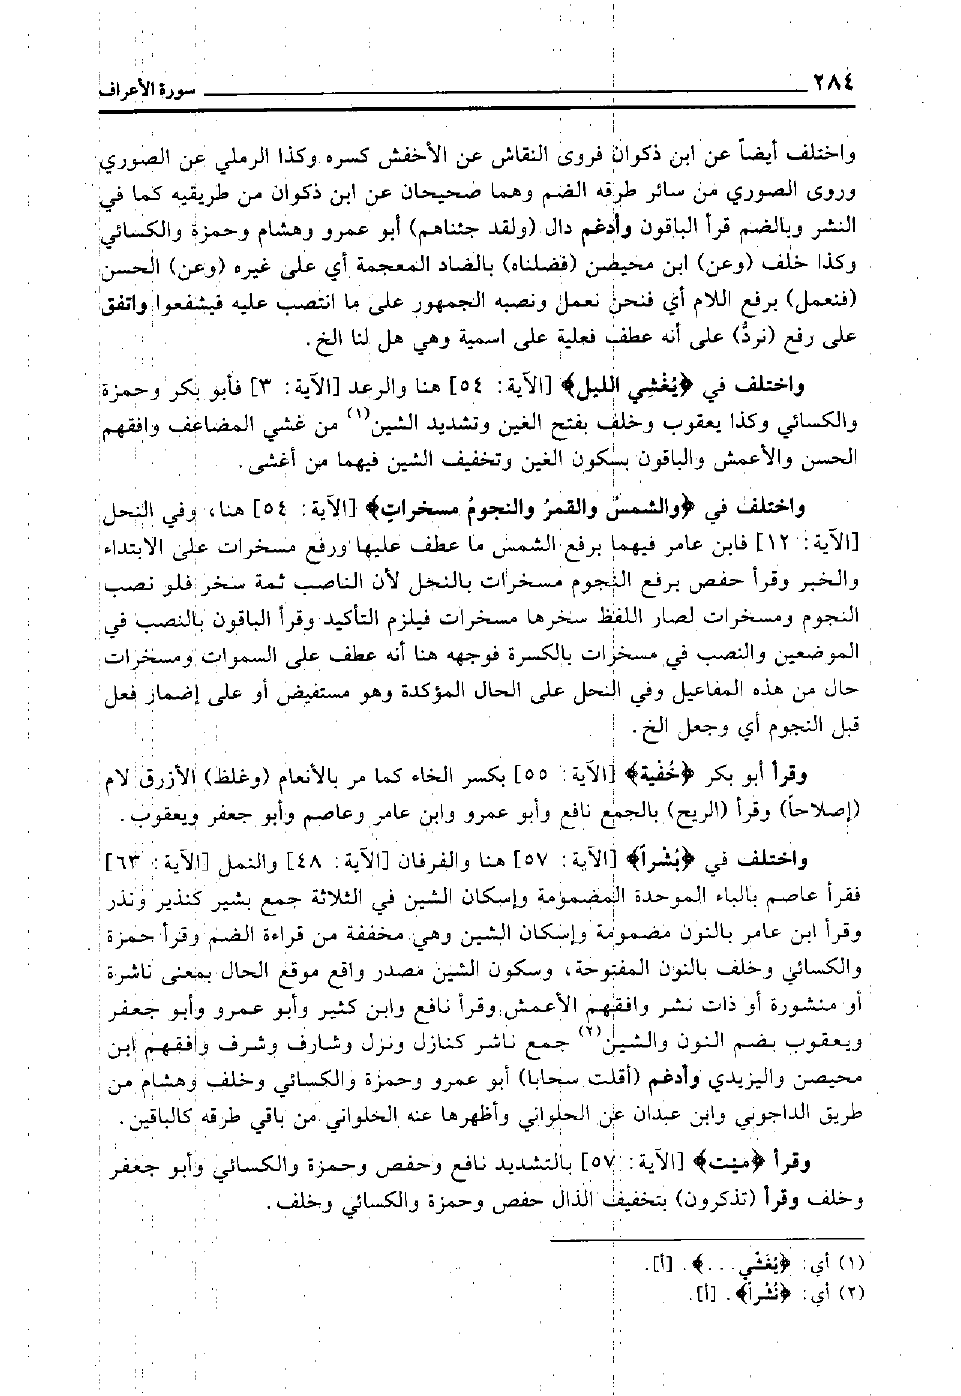 ٢٨٤ سورة الأعراف
واختلف أيضاً عن ابن ذكوان فروى النقاش عن الأخفش كسره وكذا الرملي عن الصوري
وروى الصوري من سائر طرقه الضم وهما صحيحان عن ابن ذكوان من طريقيه كما في
النشر وبالضم قرأ الباقون وأدغم دال (ولقد جئناهم) أبو عمرو وهشام وحمزة والكسائي
وكذا خلف (وعن) ابن محيصن (فضلناه) بالضاد المعجمة أي على غيره (وعن) الحسن
(فنعمل) برفع اللام أي فنحن نعمل ونصبه الجمهور على ما انتصب عليه فيشفعوا واتفق
على رفع (نردُّ) على أنه عطف فعلية على اسمية وهي هل لنا الخ.
واختلف في ﴿يُغْشِي الليل﴾ [الآية: ٥٤] هنا والرعد [الآية: ٣] فأبو بكر وحمزة
والكسائي وكذا يعقوب وخلف بفتح الغين وتشديد الشين(١) من غشي المضاعف وافقهم
الحسن والأعمش والباقون بسكون الغين وتخفيف الشين فيهما من أغشى.
واختلف في ﴿والشمسُ والقمرُ والنجومُ مسخراتٍ﴾ [الآية: ٥٤] هنا، وفي النحل
[الآية: ١٢] فابن عامر فيهما برفع الشمس ما عطف عليها ورفع مسخرات على الابتداء
والخبر وقرأ حفص برفع النجوم مسخرات بالنحل لأن الناصب ثمة سخر فلو نصب
النجوم ومسخرات لصار اللفظ سخرها مسخرات فيلزم التأكيد وقرأ الباقون بالنصب في
الموضعين والنصب في مسخرات بالكسرة فوجهه هنا أنه عطف على السموات ومسخرات
حال من هذه المفاعيل وفي النحل على الحال المؤكدة وهو مستفيض أو على إضمار فعل
قبل النجوم أي وجعل الخ.
وقرأ أبو بكر ﴿خُفْية﴾ [الآية: ٥٥] بكسر الخاء كما مر بالأنعام (وغلظ) الأزرق لام
(إصلاحاً) وقرأ (الريح) بالجمع نافع وأبو عمرو وابن عامر وعاصم وأبو جعفر ويعقوب.
واختلف في ﴿بُشْراً﴾ [الآية: ٥٧] هنا والفرقان [الآية: ٤٨] والنمل [الآية: ٦٣]
فقرأ عاصم بالباء الموحدة المضمومة وإسكان الشين في الثلاثة جمع بشير كنذير ونذر
وقرأ ابن عامر بالنون مضمومة وإسكان الشين وهي مخففة من قراءة الضم وقرأ حمزة
والكسائي وخلف بالنون المفتوحة، وسكون الشين مصدر واقع موقع الحال بمعنى ناشرة
أو منشورة أو ذات نشر وافقهم الأعمش وقرأ نافع وابن كثير وأبو عمرو وأبو جعفر
ويعقوب بضم النون والشين(٢) جمع ناشر كنازل ونزل وشارف وشرف وافقهم ابن
محيصن واليزيدي وأدغم (أقلت سحابا) أبو عمرو وحمزة والكسائي وخلف وهشام من
طريق الداجوني وابن عبدان عن الحلواني وأظهرها عنه الحلواني من باقي طرقه كالباقين.
وقرأ ﴿ميْت﴾ [الآية: ٥٧] بالتشديد نافع وحفص وحمزة والكسائي وأبو جعفر
وخلف وقرأ (تذكرون) بتخفيف الذال حفص وحمزة والكسائي وخلف.
(١) أي: ﴿يُغَشِّي...﴾. [أ].
(٢) أي: ﴿نُشُراً﴾. [أ].